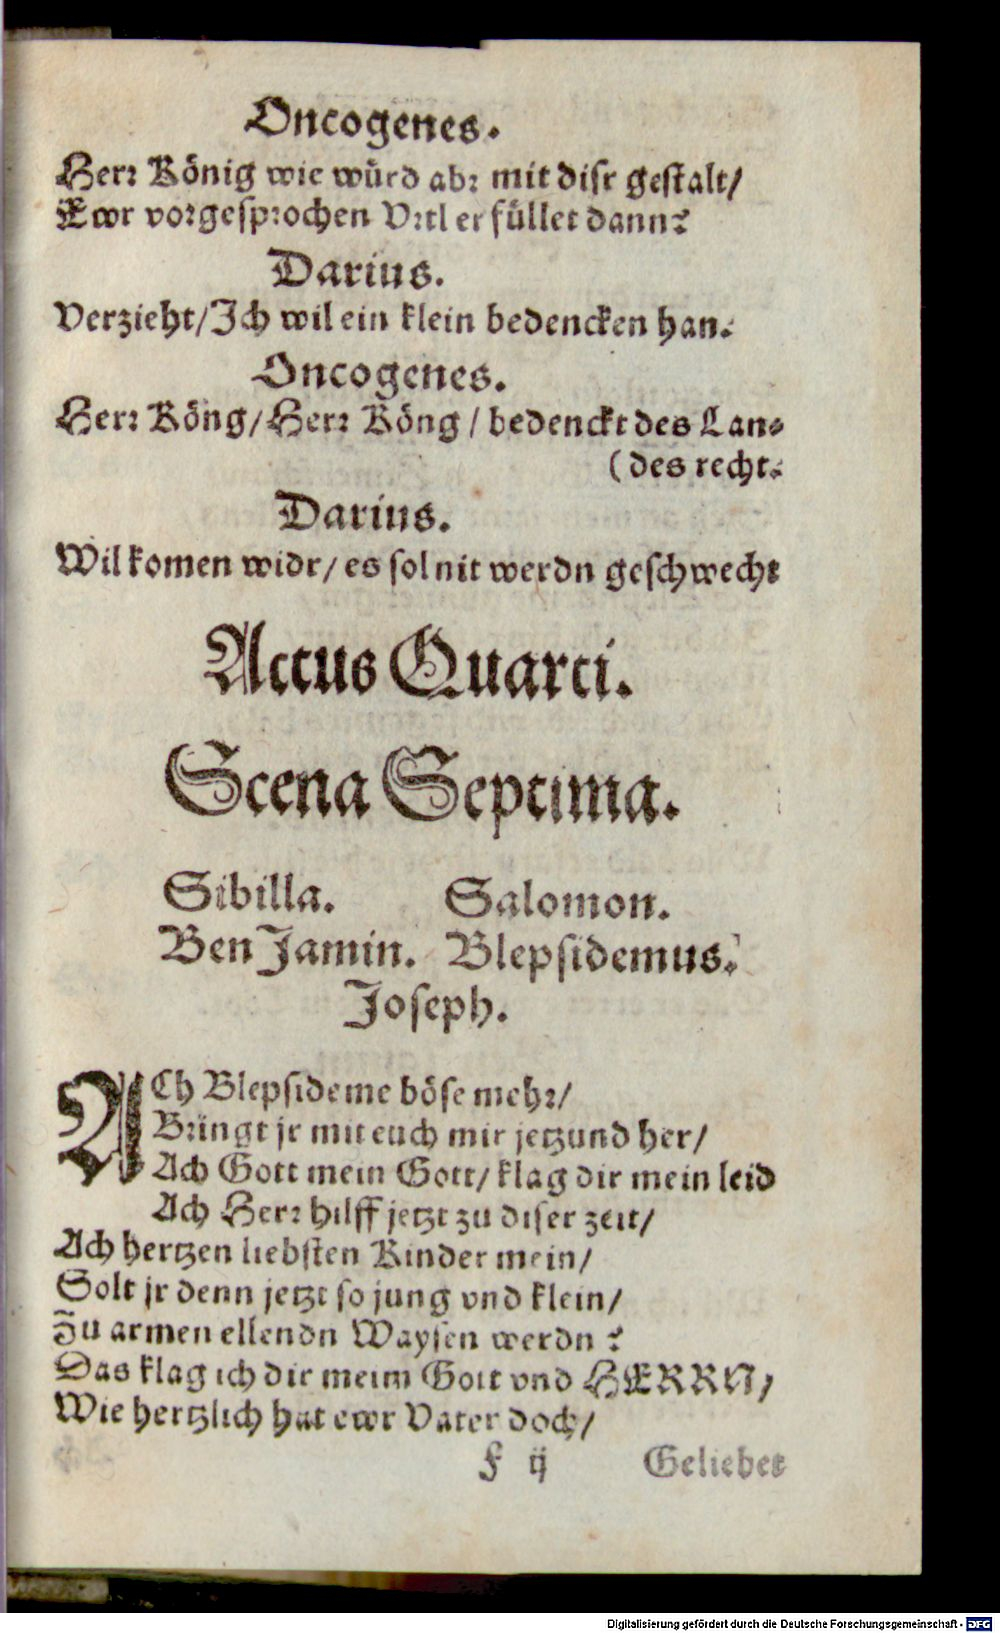 Oncogenes.
Herr König wie würd abr mit diſr geſtalt/
Ewr vorgeſprochen Vrtl erfüllet dann?
Darius.
Verzieht/Ich wil ein klein bedencken han.
Oncogenes.
Herr Köng/Herr Köng/bedenckt des Lan-
(des recht.
Darius.
Wilkomen widr/es ſol nit werdn geſchwecht
Actus Quarti.
Scena Septima.
Sibilla. Salomon.
Ben Jamin. Blepſidemus.
Joſeph.
ACh Blepſideme böſe mehr/
Bringt jr mit euch mir jetzund her/
Ach Gott mein Gott/klag dir mein leid
Ach Herr hilff jetzt zu diſer zeit/
Ach hertzen liebſten Kinder mein/
Solt jr denn jetzt ſo jung vnd klein/
Zu armen ellendn Wayſen werdn?
Das klag ich dir meim Gott vnd HERRN/
Wie hertzlich hat ewr Vater doch/
F ij Geliebet
Digitalisierung gefördert durch die Deutsche Forschungsgemeinschaft - DFG